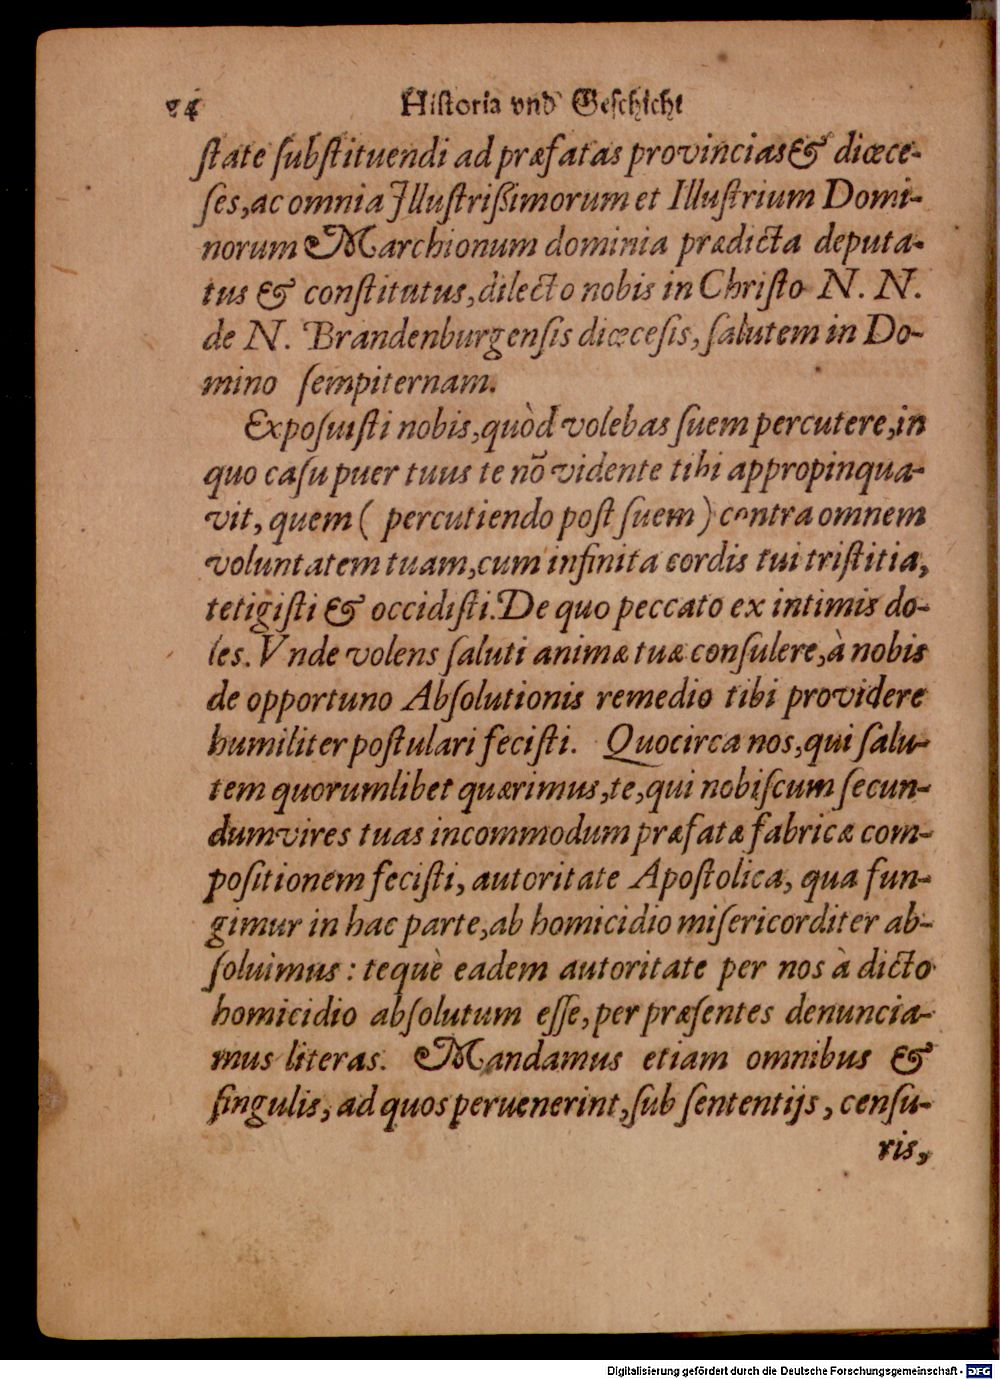 24 Hiſtoria vnd Geſchicht
ſtate ſubſtituendi ad præfatas provincias & diœce-
ſes, ac omnia Jlluſtriſſimorum et Illuſtrium Domi-
norum Marchionum dominia prædicta deputa-
tus & conſtitutus, dilecto nobis in Chriſto N. N.
de N. Brandenburgenſis diœceſis, ſalutem in Do-
mino ſempiternam.
Expoſuiſti nobis, quòd volebas ſuem percutere, in
quo caſu puer tuus te nõ vidente tibi appropinqua-
vit, quem ( percutiendo poſt ſuem ) contra omnem
voluntatem tuam, cum infinita cordis tui triſtitia,
tetigiſti & occidiſti. De quo peccato ex intimis do-
les. Vnde volens ſaluti animæ tuæ conſulere, à nobis
de opportuno Abſolutionis remedio tibi providere
humiliter poſtulari feciſti. Quocirca nos, qui ſalu-
tem quorumlibet quærimus, te, qui nobiſcum ſecun-
dum vires tuas incommodum præfatæ fabricæ com-
poſitionem feciſti, autoritate Apoſtolica, qua fun-
gimur in hac parte, ab homicidio miſericorditer ab-
ſoluimus : tequè eadem autoritate per nos à dicto
homicidio abſolutum eſſe, per præſentes denuncia-
mus literas. Mandamus etiam omnibus &
ſingulis, ad quos peruenerint, ſub ſententijs, cenſu-
ris,
Digitalisierung gefördert durch die Deutsche Forschungsgemeinschaft - DFG